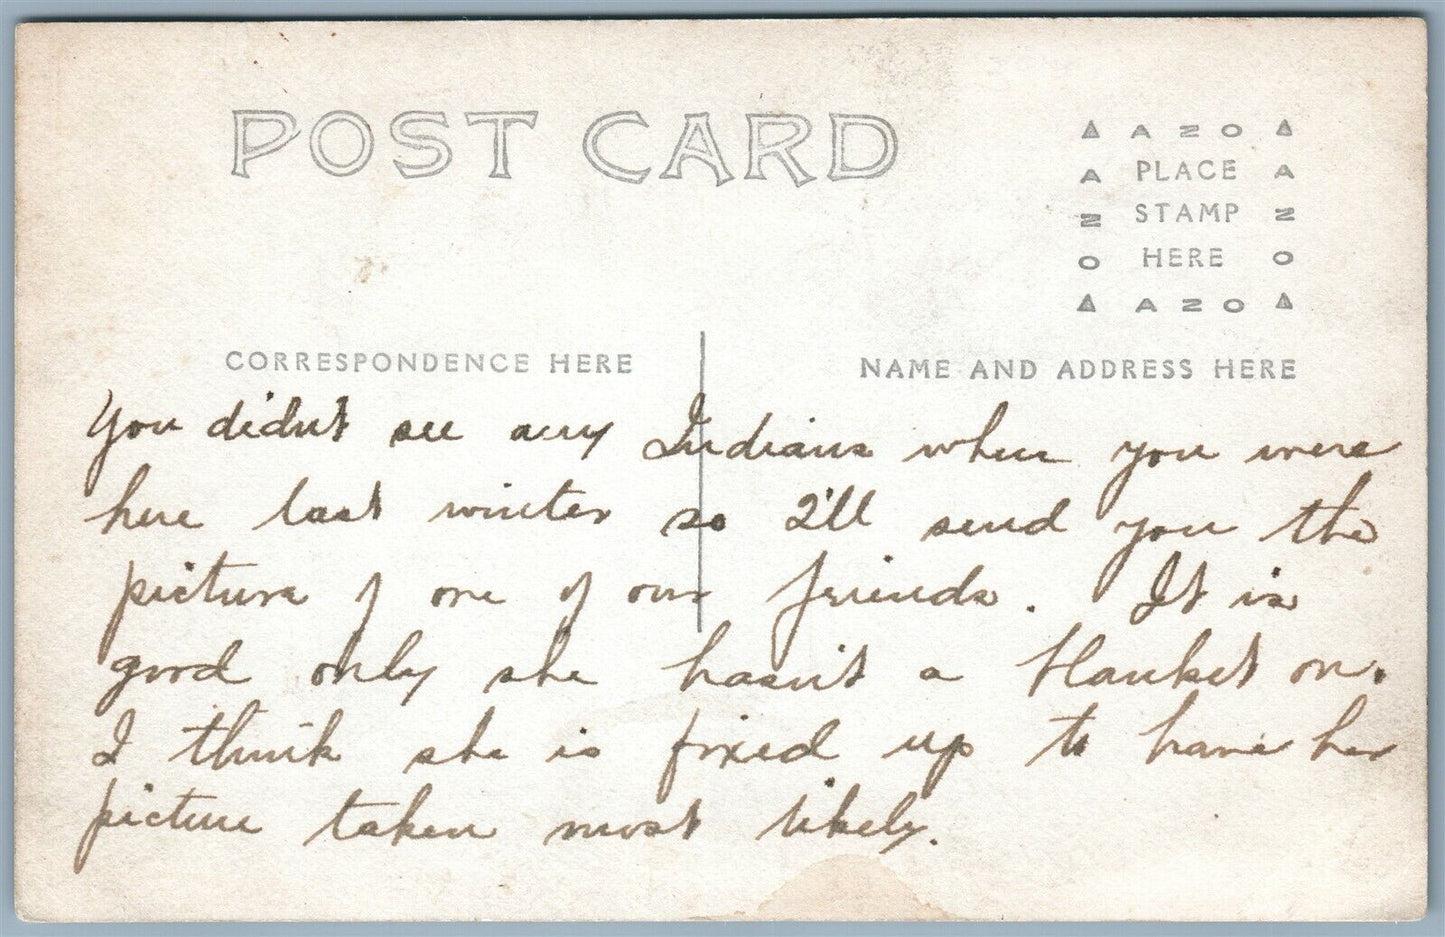 POST CARD
▲ AZO ▲
A PLACE A
N STAMP N
O HERE O
▲ AZO ▲
CORRESPONDENCE HERE
NAME AND ADDRESS HERE
You didn't see any Indians when you were
here last winter so I'll send you the
picture of one of our friends. It is
good only she hasn't a blanket on.
I think she is fixed up to have her
picture taken most likely.